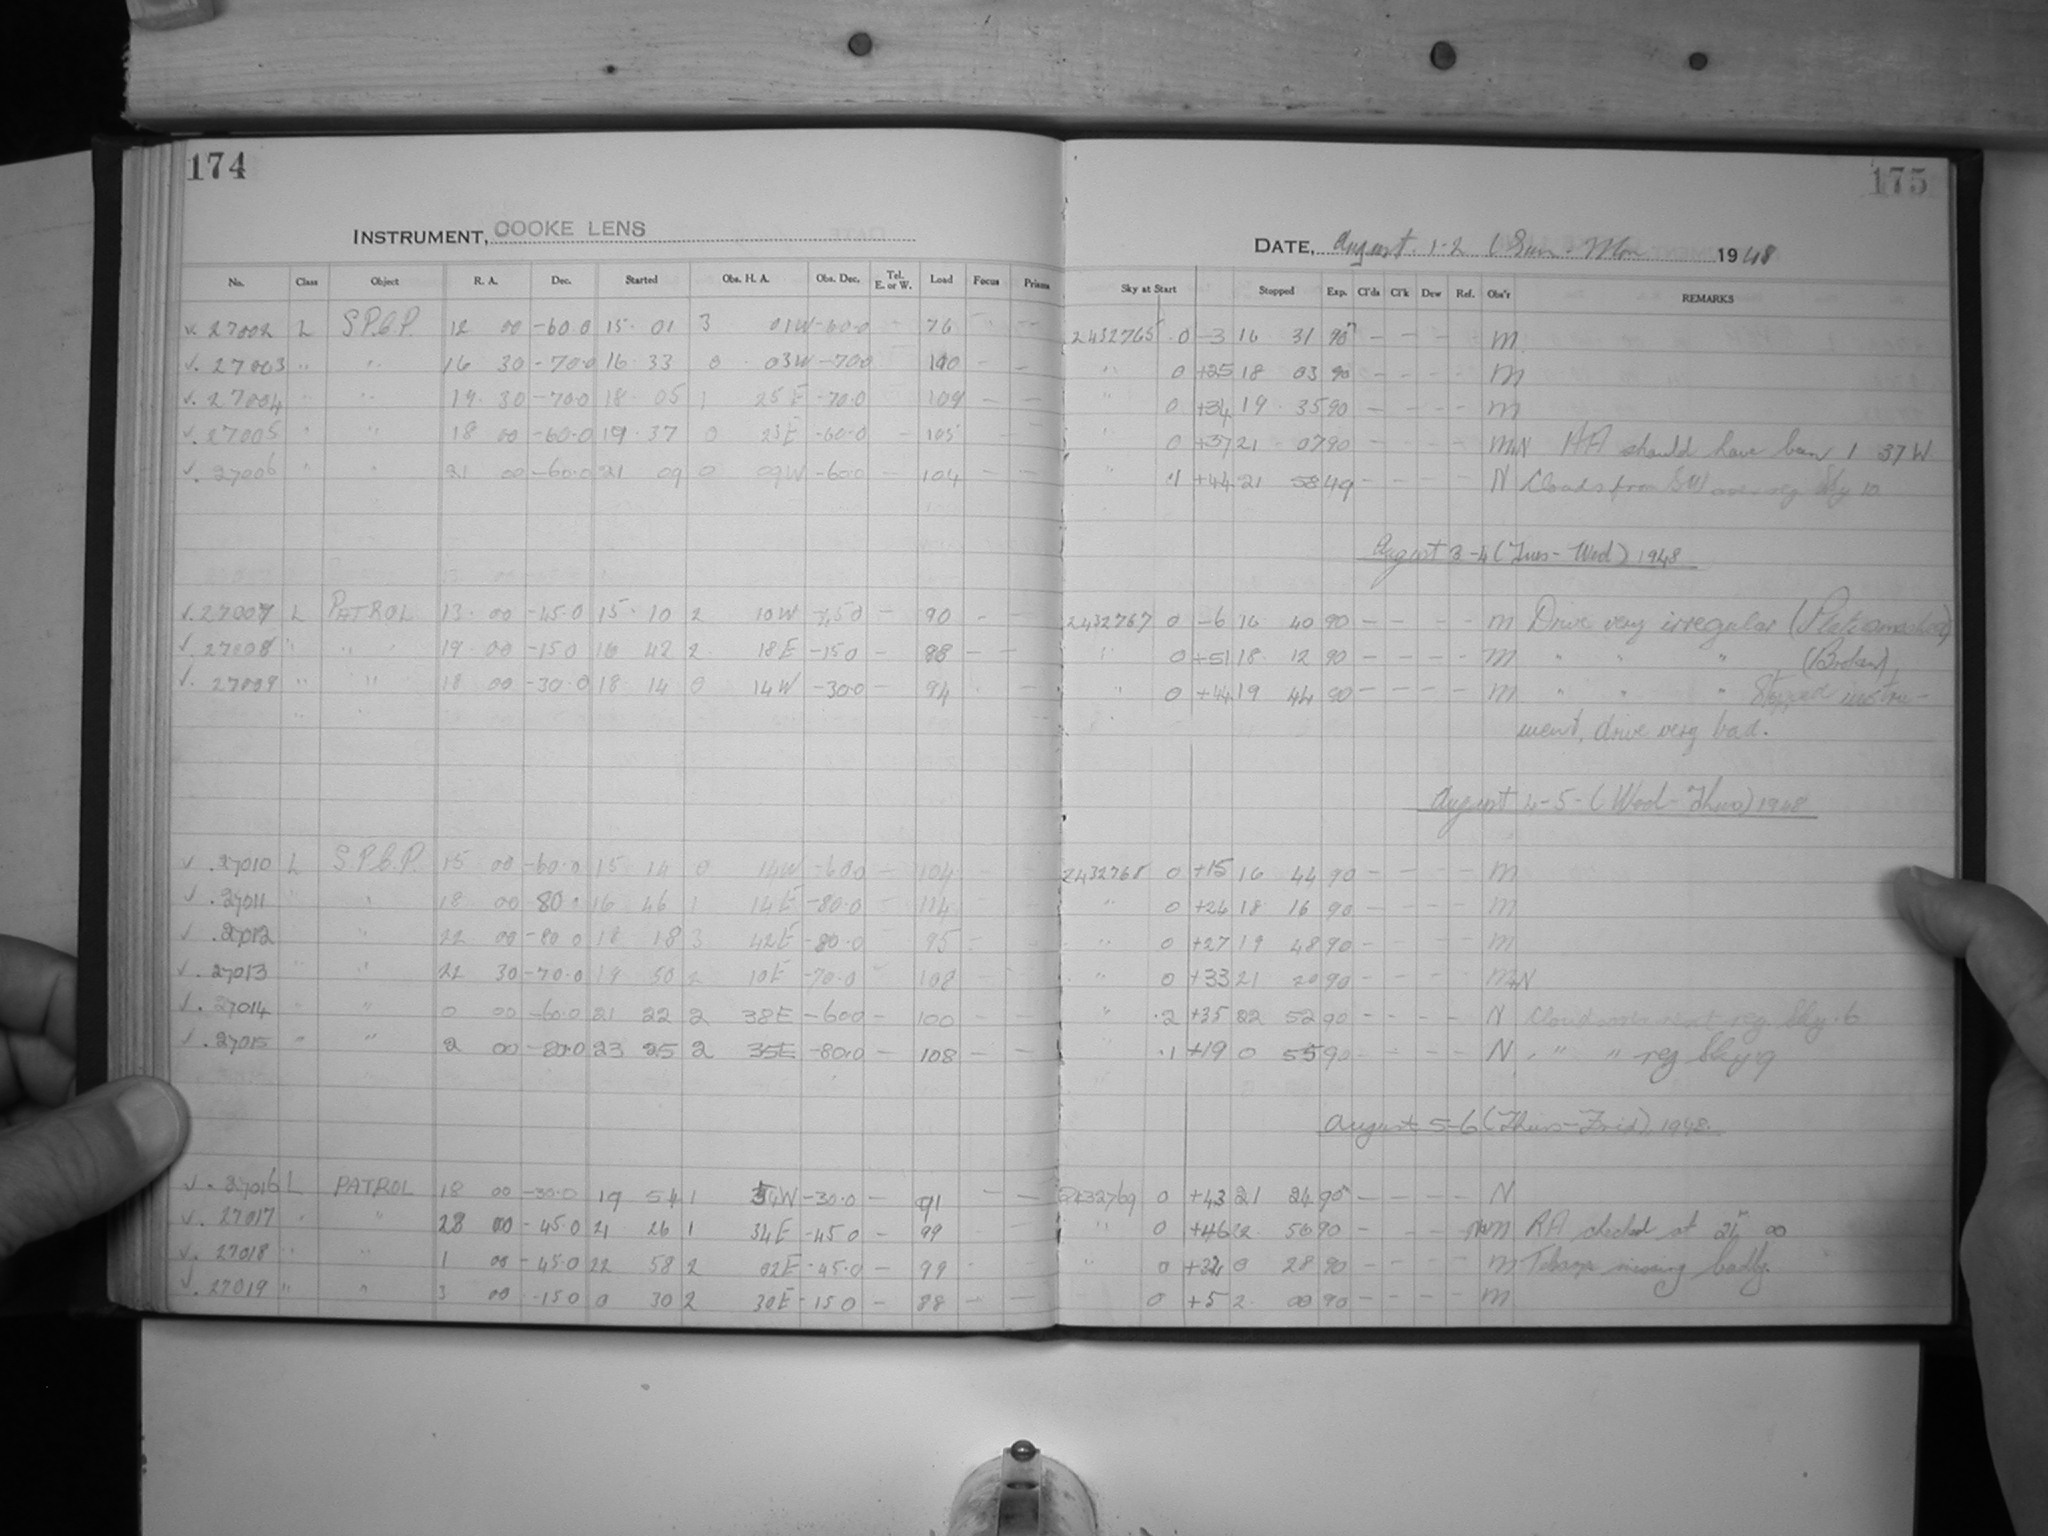 174
INSTRUMENT, COOKE LENS
No. Class Object R. A. Dec. Started Obs. H. A. Obs. Dec. Tel. E. or W. Load Focus Prisms
v. 27002 L S.P.C.P. 12 00 -60.0 15 01 3 01W -60.0 76
v. 27003 " " 16 30 -70.0 16 33 0 03W -70.0 100 - -
v. 27004 " " 19 30 -70.0 18 05 1 25E -70.0 109 - -
v. 27005 " " 18 00 -60.0 19 37 0 23E -60.0 - 105 - -
v. 27006 " " 21 00 -60.0 21 09 0 09W -60.0 - 104 - -
v. 27007 L PATROL 13 00 -45.0 15 10 2 10W -45.0 - 90 - -
v. 27008 " " 19 00 -15.0 16 42 2 18E -15.0 - 88 - -
v. 27009 " " 18 00 -30.0 18 14 0 14W -30.0 - 94 - -
v. 27010 L S.P.C.P. 15 00 -60.0 15 14 0 14W -60.0 - 104 - -
v. 27011 " 18 00 80.0 16 46 1 14E -80.0 - 114 - -
v. 27012 " 22 00 -80.0 18 18 3 42E -80.0 - 95 - -
v. 27013 " " 22 30 -70.0 19 50 2 10E -70.0 - 108 - -
v. 27014 " " 0 00 -60.0 21 22 2 38E -60.0 - 100 - -
v. 27015 " " 2 00 -80.0 23 25 2 35E -80.0 - 108 - -
v. 27016 L PATROL 18 00 -30.0 19 54 1 W -30.0 - 91 - -
v. 27017 " " 00 -45.0 21 26 1 34E -45.0 - 99 -
v. 27018 " " 1 00 -45.0 22 58 2 02E -45.0 - 99 - -
v. 27019 " " 3 00 -15.0 0 30 2 30E -15.0 - 88 - -
175
DATE, August 1-2 (Sun - Mon 1948
Sky at Start Stopped Exp. Cl'ds Cl'k Dew Ref. Obs'r REMARKS
2432765 .0 -3 16 31 90 - - - - M
" 0 +25 18 03 90 - - - - M
" 0 +34 19 35 90 - - - - M
" 0 +37 21 07 90 - - - - M&N HA should have been 1 37 W
" .1 +44 21 58 49 - - - - N Clouds from SW Sky 10
August 3-4 (Tues - Wed) 1948
2432767 0 -6 16 40 90 - - - - M Drive very irregular (Plate smashed)
" 0 +51 18 12 90 - - - - M " " " (Broken)
" 0 +44 19 44 90 - - - - M " " " Stopped instru-
ment, drive very bad.
August 4-5 - (Wed - Thurs) 1948
2432768 0 +15 16 44 90 - - - - M
" 0 +24 18 16 90 - - - - M
" 0 +27 19 48 90 - - - - M
" 0 +33 21 20 90 - - - - M&N
" .2 +35 22 52 90 - - - - N Cloud over reg Sky .6
" .1 +19 0 55 90 - - - - N " " " reg Sky 9
August 5-6 (Thurs - Frid) 1948.
2432769 0 +43 21 24 90 - - - - N
" 0 +46 22 56 90 - - - N&M RA checked at 00
" 0 0 28 90 - - - - M missing badly.
0 +5 2 00 90 - - - - M